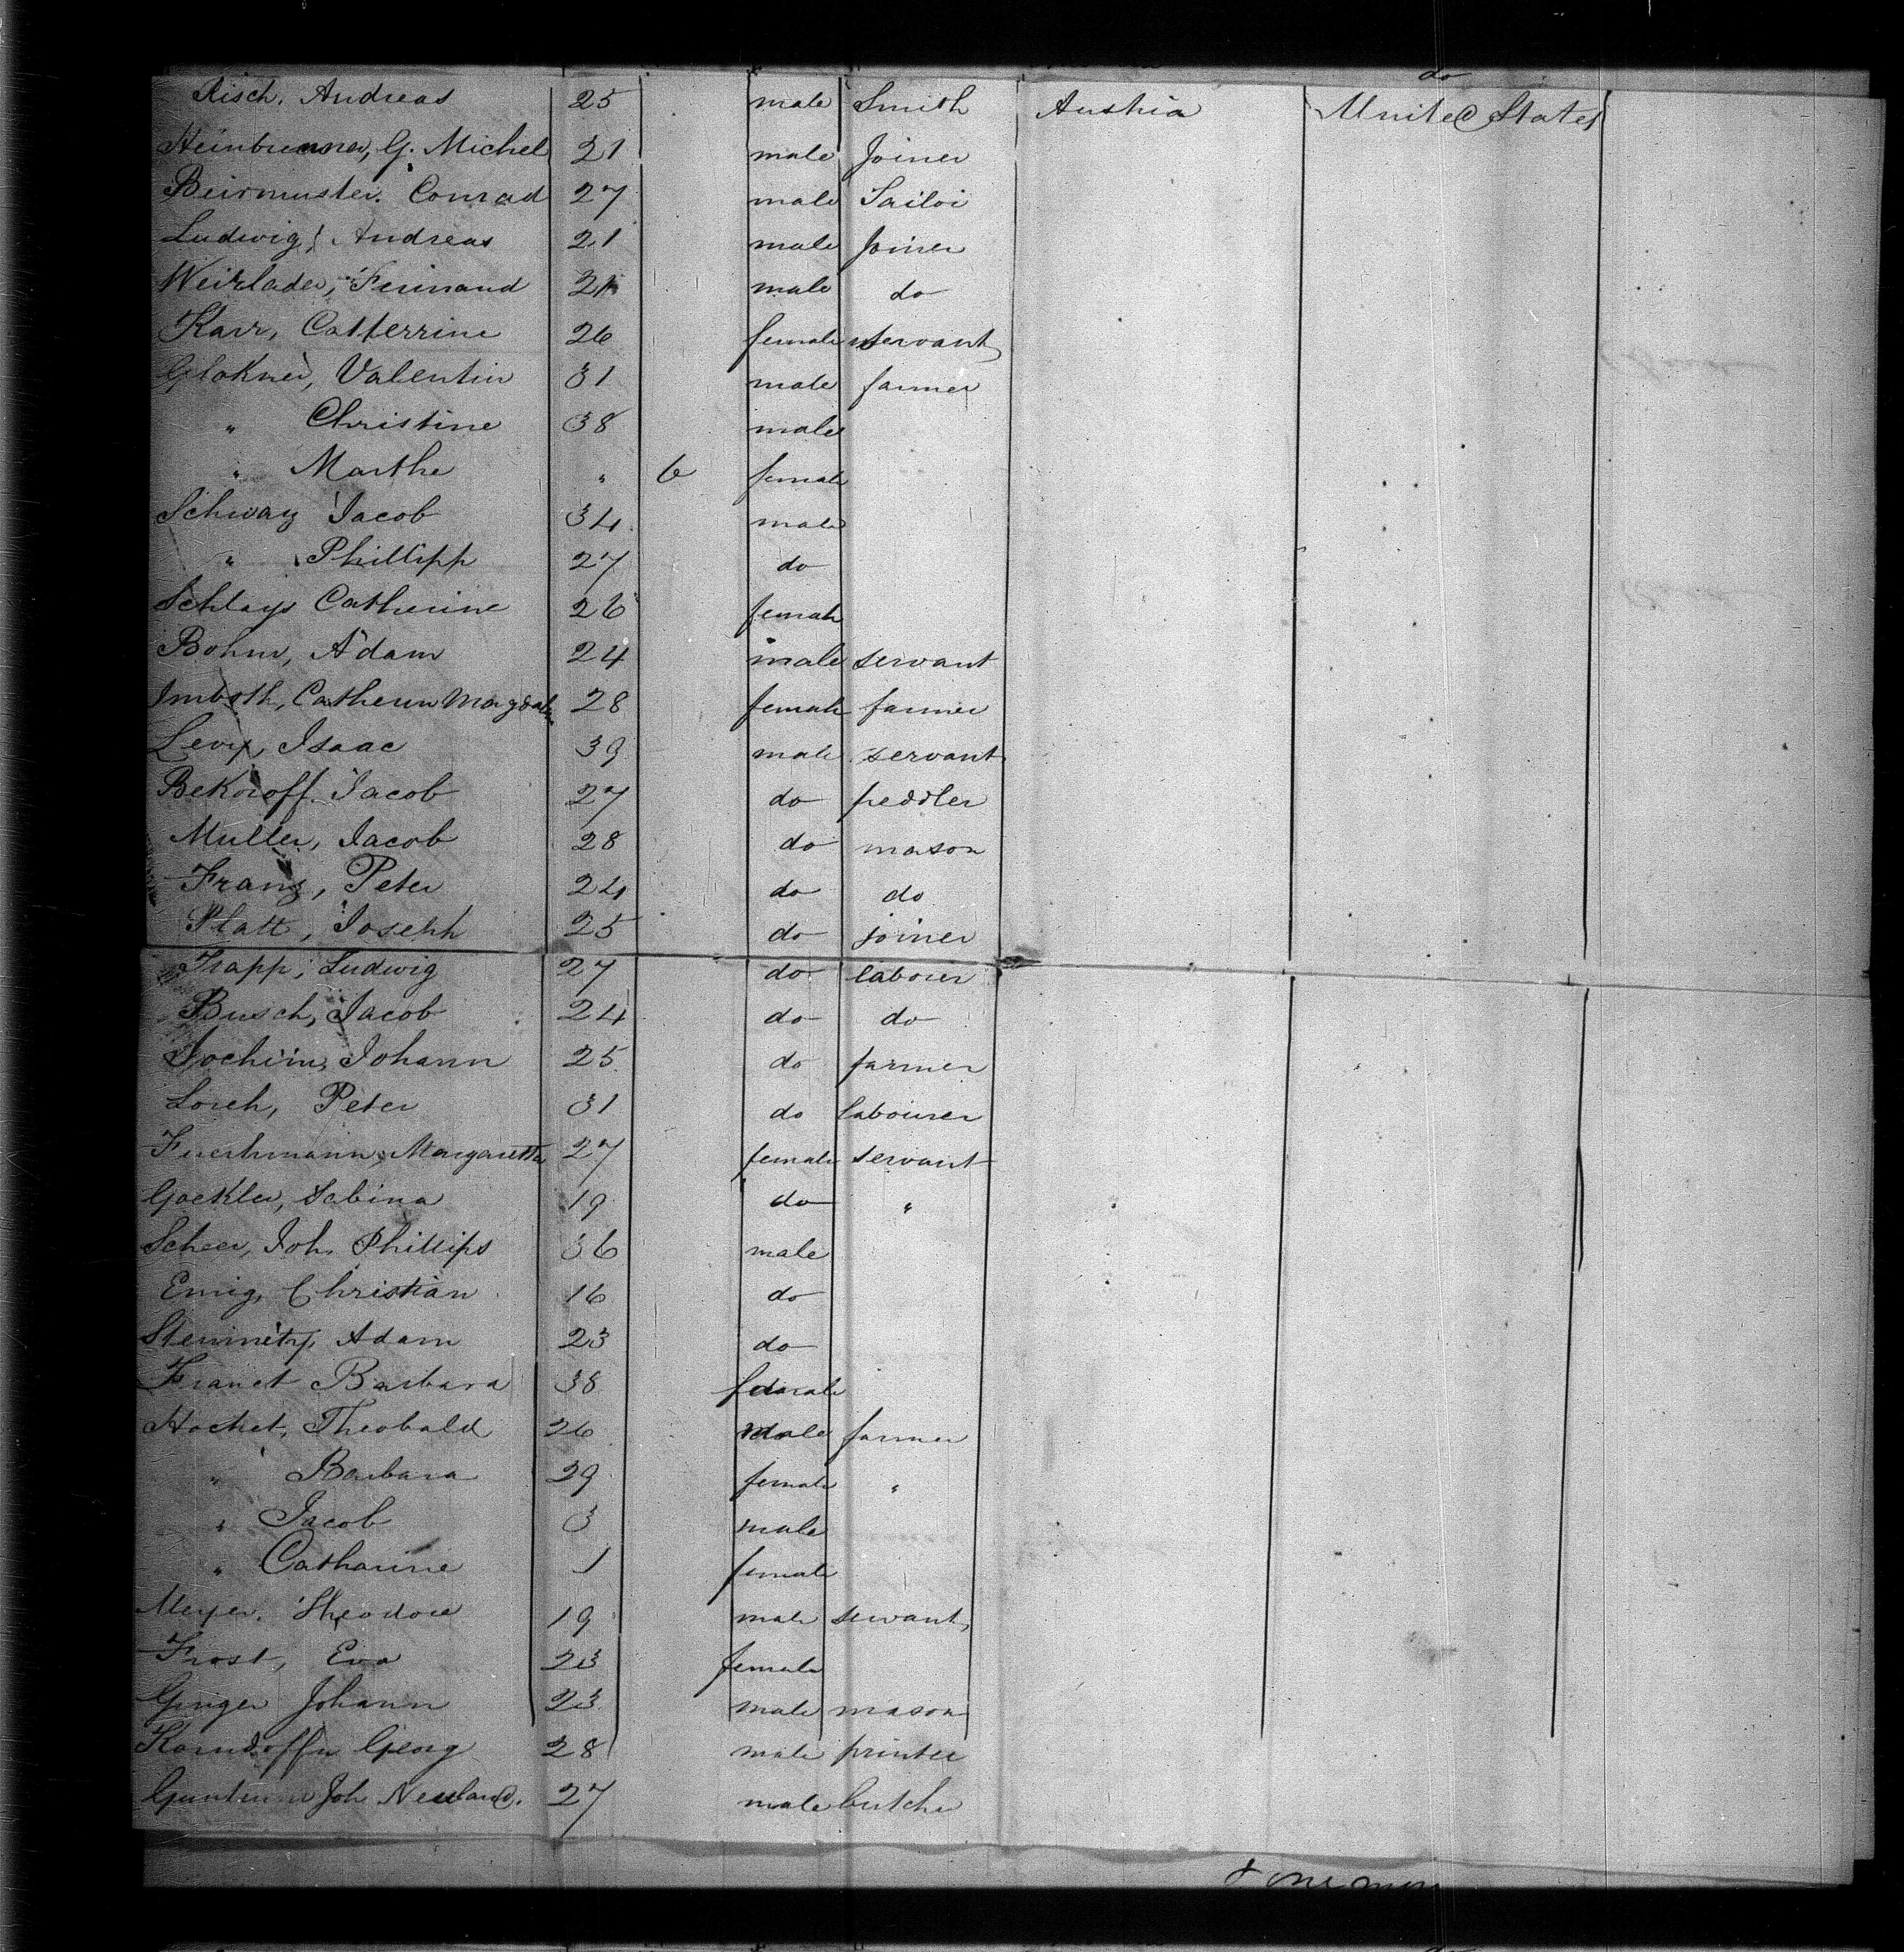 do
Risch, Andreas 25 male Smith Austria United States
Heinbrenner, G. Michel 21 male Joiner
Beirmuster, Conrad 27 male Tailor
Ludwig, Andreas 21 male Joiner
Ferinand 21 male do
Karr, Catterrine 26 female servant
Glokner, Valentin 31 male farmer
" Christine 38 male
" Marthe " 6 female
Schwarz Jacob 34 male
" Phillipp 27 do
Schlays Catherine 26 female
Bohm, Adam 24 male servant
Imboth, Catherin Magdalin 28 female farmer
Levy, Isaac 39 male servant
Bekoroff Jacob 27 do peddler
Muller, Jacob 28 do mason
Franz, Peter 24 do do
Platt, Joseph 25 do joiner
Trapp, Ludwig 27 do laborer
Busch, Jacob 24 do do
Jochim, Johann 25 do farmer
Lorch, Peter 31 do labourer
Margaretta 27 female servant
Gockler, Sabina 19 do "
Scheer, Joh. Phillips 36 male
Emig, Christian 16 do
Steinmetz, Adam 23 do
Franct Barbara 38 female
Hochet, Theobald 26 male farmer
" Barbara 29 female "
" Jacob 3 male
" Catharine 1 female
Meyer, Theodore 19 male servant
Frost, Eva 23 female
Ginger Johann 23 male mason
Georg 28 male printer
Joh Neuland. 27 male butcher